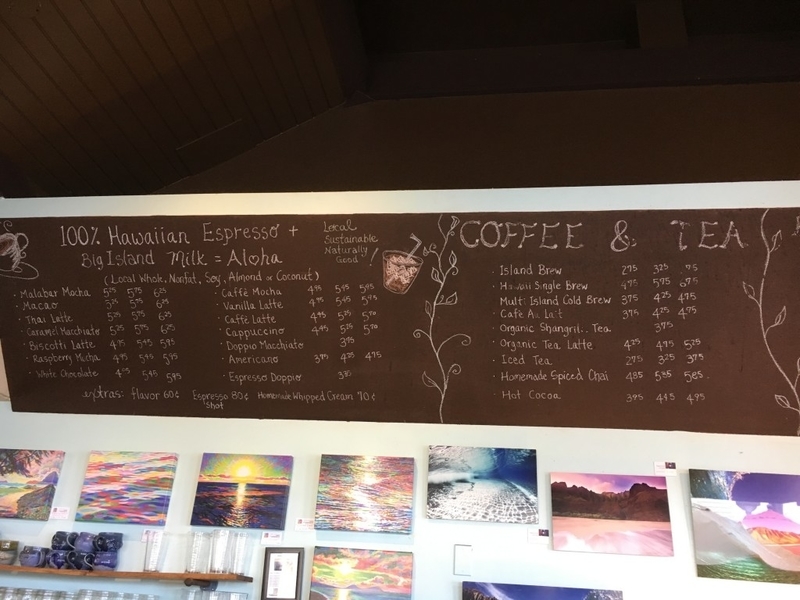 100% Hawaiian Espresso +
Big Island Milk = Aloha
Local
Sustainable
Naturally
Good!
(Local Whole, Nonfat, Soy, Almond or Coconut)
· Malabar Mocha 5.25 5.75 6.25
· Macao 5.25 5.75 6.25
· Thai Latte 5.25 5.75 6.25
· Caramel Macchiato 5.25 5.75 6.25
· Biscotti Latte 4.95 5.45 5.95
· Raspberry Mocha 4.95 5.45 5.95
· White Chocolate 4.95 5.45 5.95
· Caffè Mocha 4.95 5.45 5.95
· Vanilla Latte 4.95 5.45 5.95
· Caffè Latte 4.45 5.20 5.70
· Cappuccino 4.45 5.20 5.70
· Doppio Macchiato
· Americano 3.75 4.25 4.75
· Espresso Doppio
extras: flavor 60¢ Espresso 80¢ Homemade Whipped Cream 70¢
Shot
COFFEE & TEA
· Island Brew 2.75 3.25 .75
· Hawaii Single Brew 4.75 5.75 6.75
· Multi Island Cold Brew 3.75 4.25 4.75
· Café Au Lait 3.75 4.25 4.75
· Organic Shangri Tea 3.75
· Organic Tea Latte 4.25 4.75 5.25
· Iced Tea 2.75 3.25 3.75
· Homemade Spiced Chai 4.85 5.35 5.85
· Hot Cocoa 3.95 4.45 4.95